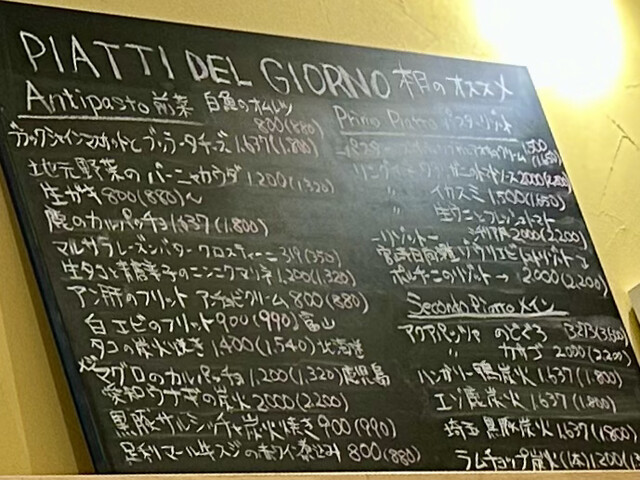 PIATTI DEL GIORNO 本日のオススメ
Antipasto 前菜
白魚のオムレツ 800(880)
ブラックシャインマスカットとブッラータチーズ 1.637(1.800)
地元野菜のバーニャカウダ 1.200(1.320)
生ガキ 800(880)〜
鹿のカルパッチョ 1.637(1.800)
マルサラレーズンバタークロスティーニ 319(350)
生タコと青唐辛子のニンニクマリネ 1.200(1.320)
アン肝のフリット アンチョビクリーム 800(880)
白エビのフリット 900(990) 富山
タコの炭火焼き 1.400(1.540) 北海道
マグロのカルパッチョ 1.200(1.320) 鹿児島
愛知ウナギの炭火 2000(2200)
黒豚サルシッチャ炭火焼き 900(990)
足利マール牛スジの赤ワイン煮込み 800(880)
Primo Piatto パスタ・リゾット
クリーム 1500(1.650)
リングイネ ソース 2000(2.200)
〃 イカスミ 1.500(1.650)
〃 生ウニとフレッシュトマト
ーリゾットー 2000(2.200)
宮崎日向灘
ポルチーニのリゾット 2000(2,200)
Secondo Piatto メイン
アクアパッツァ のどぐろ 3273(3,600)
〃 カサゴ 2000(2200)
ハンガリー鴨炭火 1.637(1.800)
エゾ鹿炭火 1.637(1.800)
埼玉黒豚炭火 1.637(1.800)
ラムチョップ炭火(1本) 1200